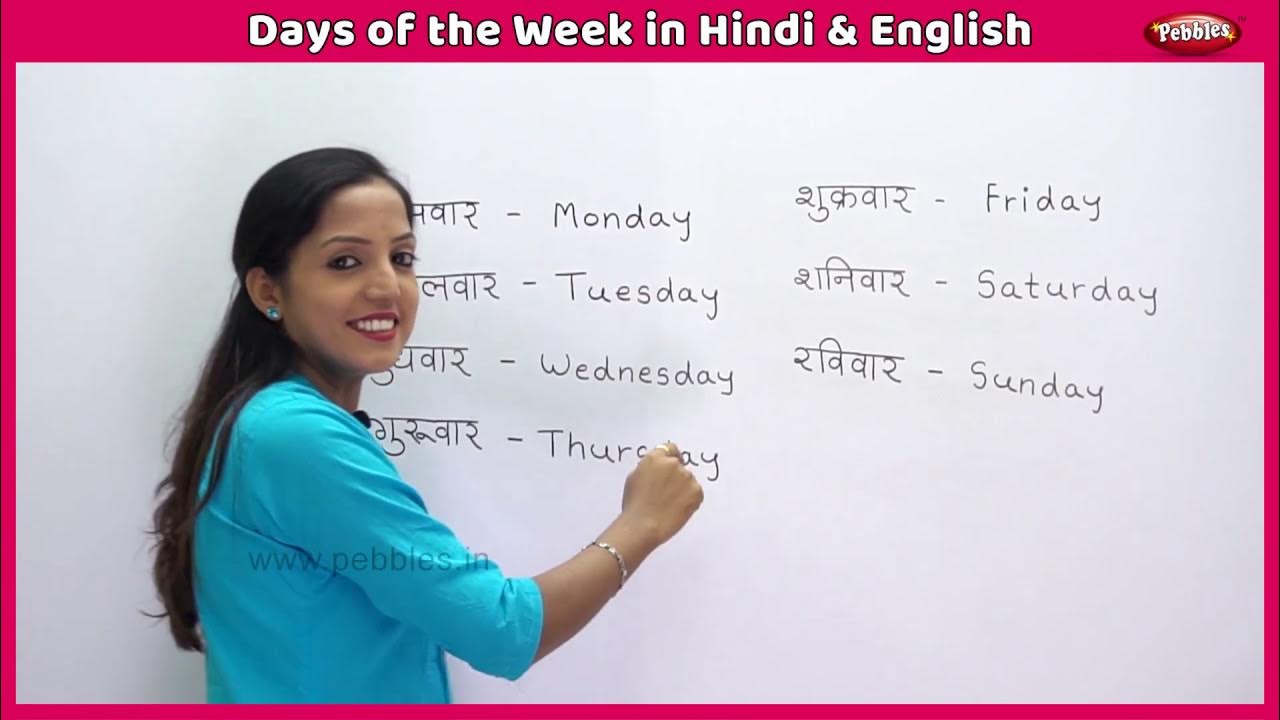 Days of the Week in Hindi & English
Pebbles
- Monday
- Tuesday
- Wednesday
गुरूवार -
शुक्रवार - Friday
शनिवार - Saturday
रविवार - Sunday
www.pebbles.in